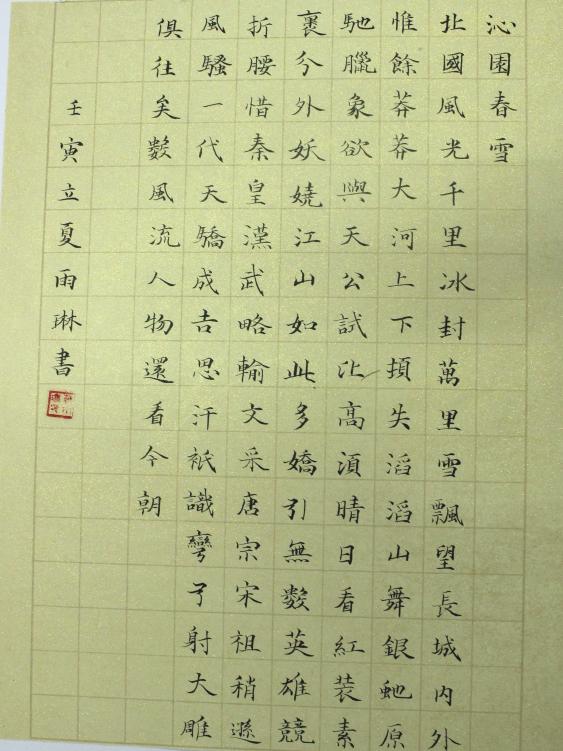 沁園春雪
北國風光千里冰封萬里雪飄望長城内外
惟餘莽莽大河上下頓失滔滔山舞銀虵原
馳臘象欲與天公試比高須晴日看紅装素
裹分外妖嬈江山如此多嬌引無數英雄競
折腰惜秦皇漢武略輸文采唐宗宋祖稍遜
風騷一代天驕成吉思汗祇識彎弓射大雕
俱往矣數風流人物還看今朝
壬寅立夏雨琳書